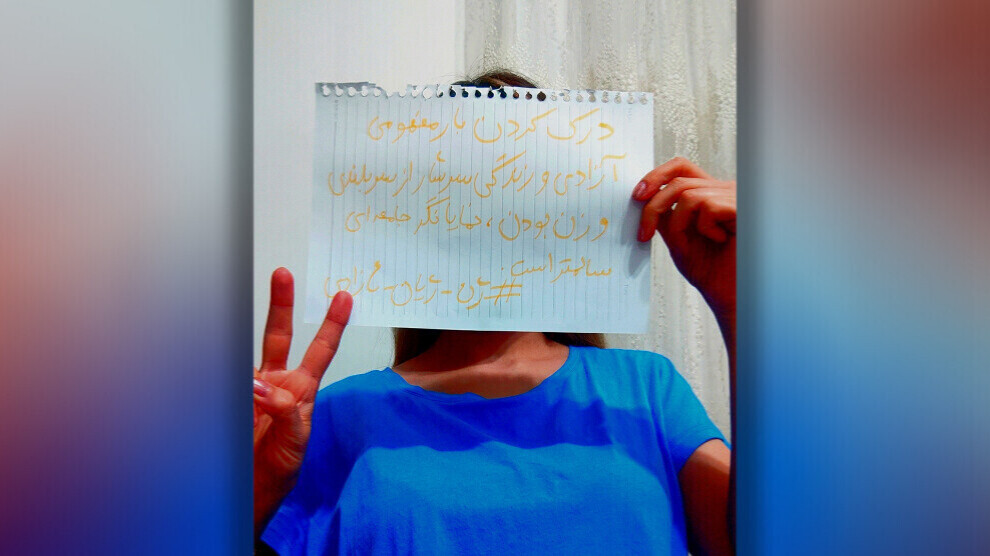 درک کردن بار مفهومی
آزادی و زندگی سرشار از سربلندی
و زن بودن ، نمایانگر جامعه‌ای
سالمتر است.
#ژن-ژیان-ئازادی